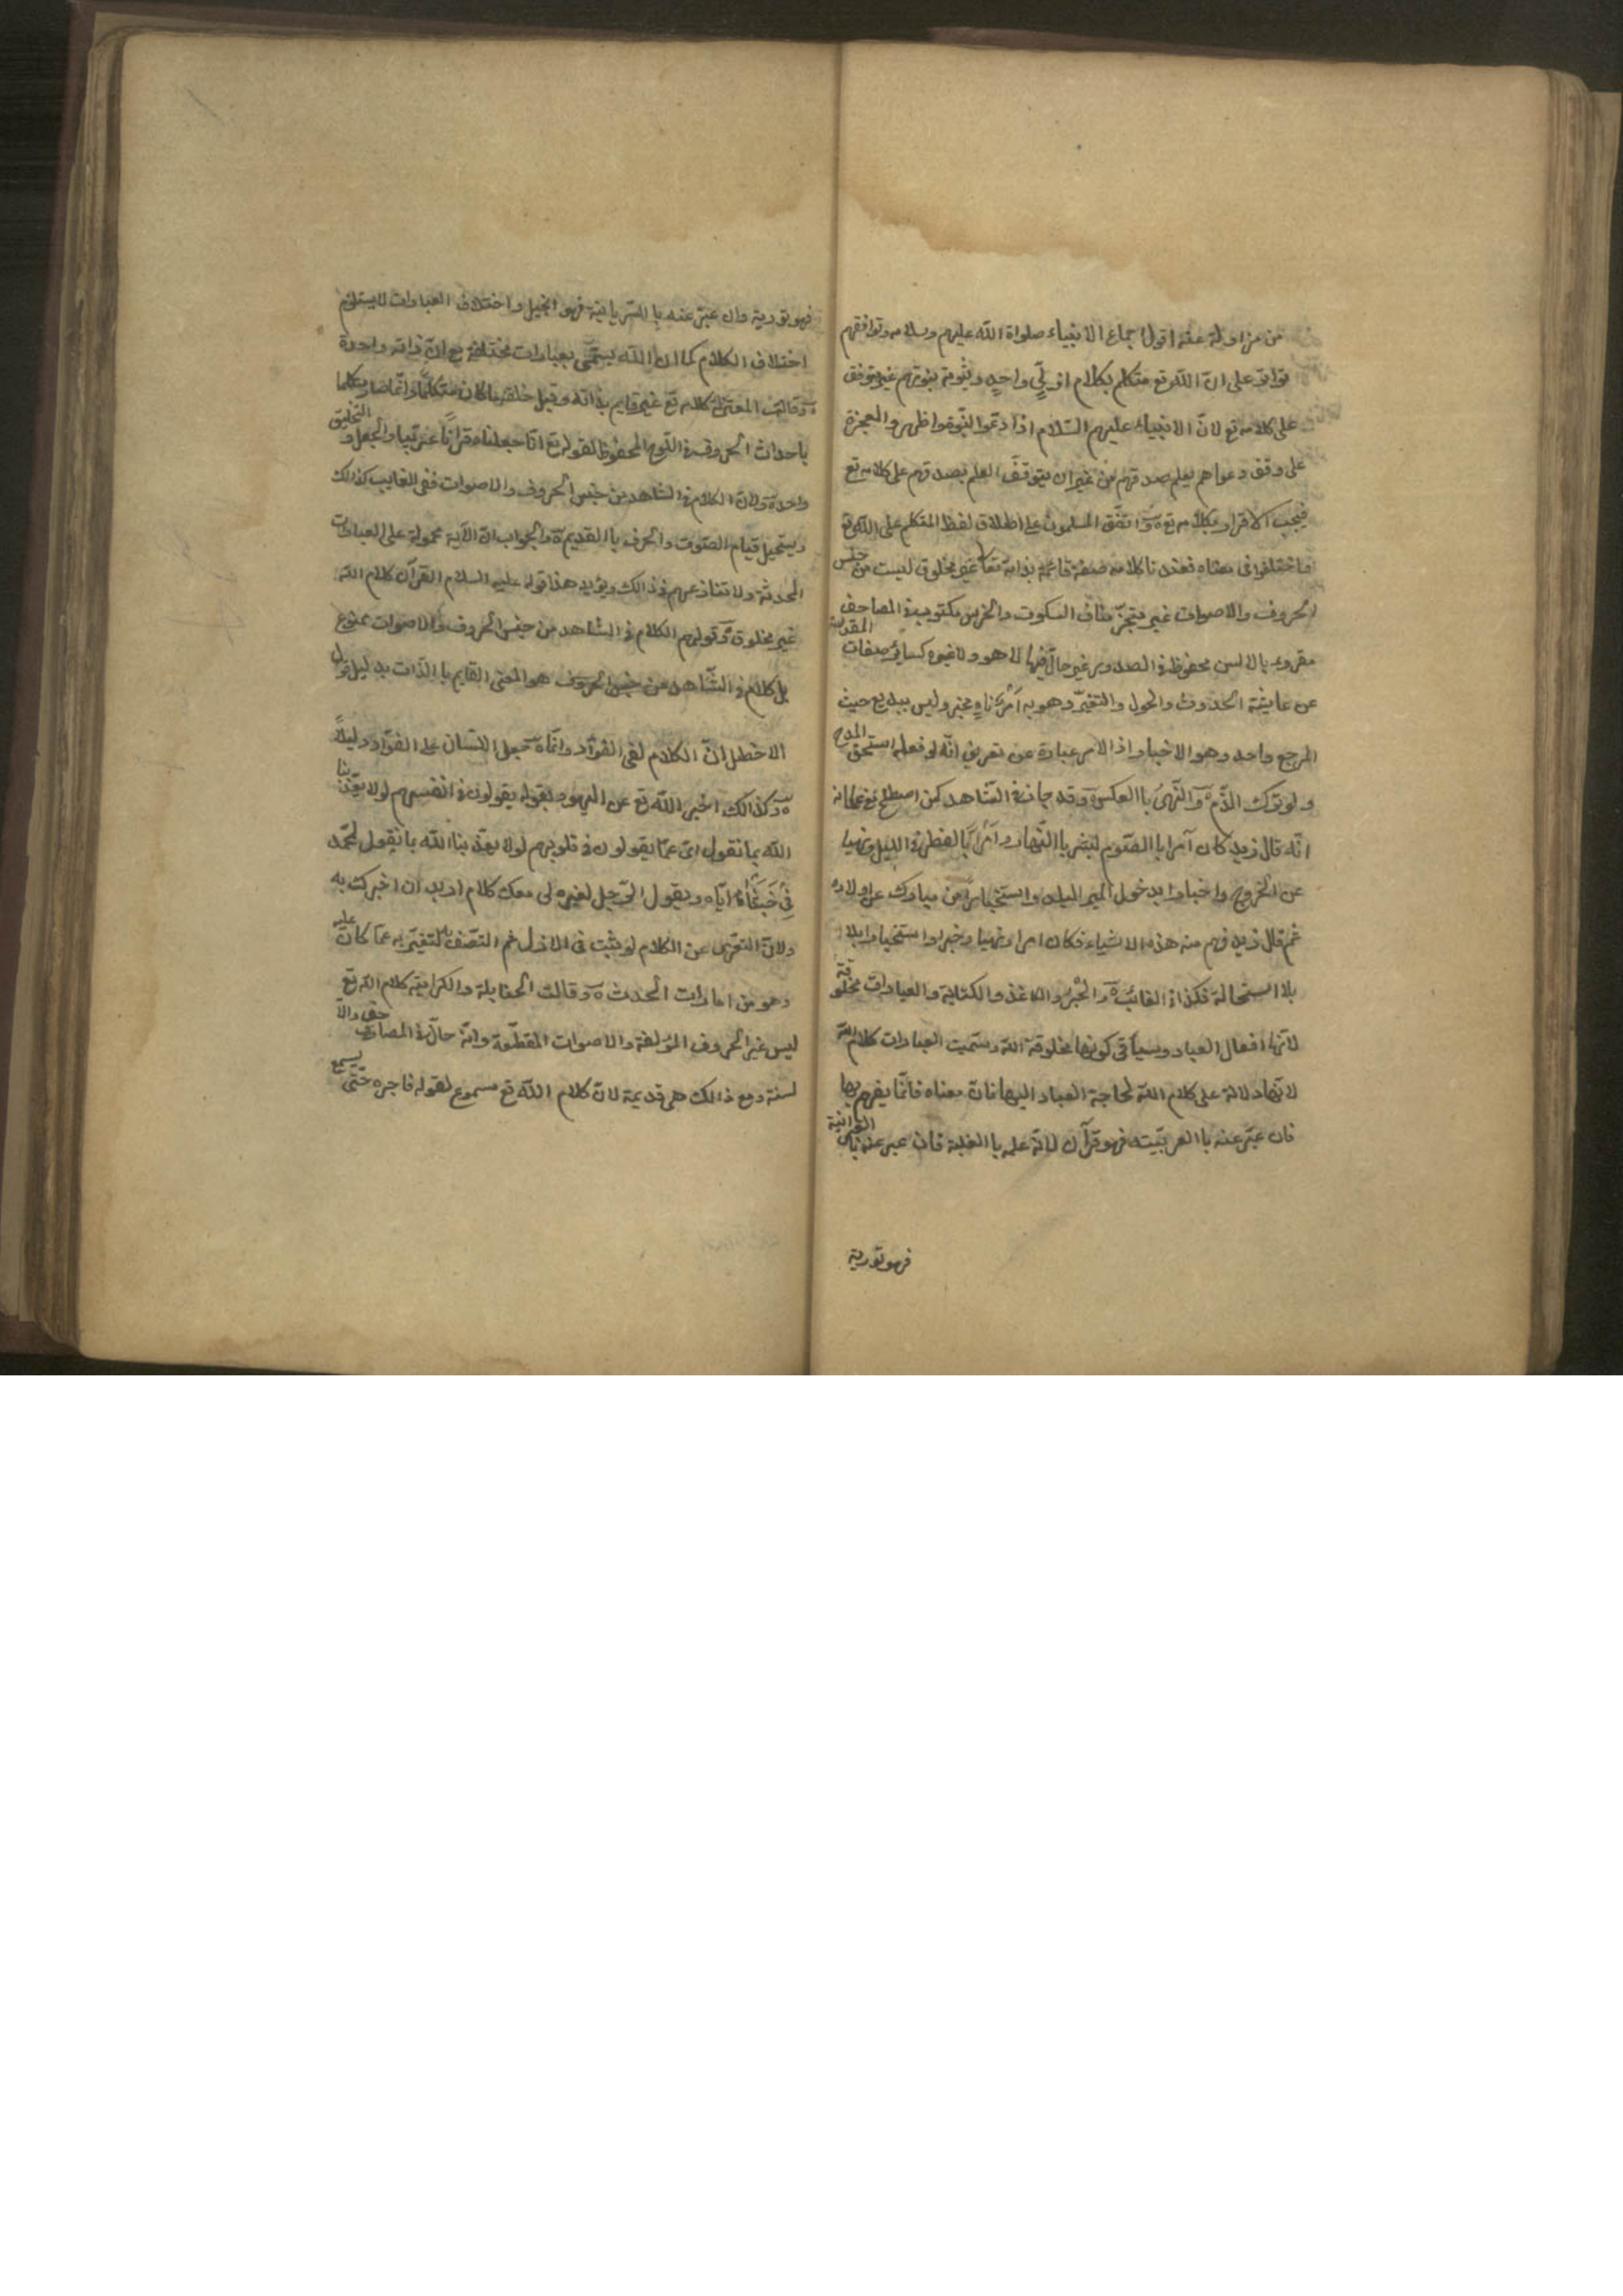 من مزاولة عقد اقول اجماع الانبياء صلواة الله عليهم وسلامه وتوافقهم
تواتر على انّ الله تع متكلم بكلام ازليّ واحد وثبوت نبوتهم غير متوقف
على كلامه تع لانّ الانبياء عليهم السّلام اذا ادّعوا النّبوة واظهروا المعجزة
على وفق دعواهم يعلم صدقهم من غير ان يتوقّف العلم بصدقهم على كلامه تع
فيجب الاقرار بكلامه تع واتّفق المسلمون على اطلاق لفظ المتكلم على الله تع
فاختلفوا فى معناه فعندنا كلامه صفة قائمة بذاته تعا غير مخلوق ليست من جنس
الحروف والاصوات غير متجزّ مناف السكوت والخرس مكتوب فى المصاحف
مقروء بالالسن محفوظ فى الصدور غير حالّ فيها لا هو ولا غيره كسائر صفات المقدسة
عن عايشة الحدوث والحول والتغيّر وهو به آمر ناه مخبر وليس ببديع حيث
المرجع واحد وهو الاخبار اذ الامر عبارة عن تعريف انّه لو فعله استحق المدح
ولو ترك الذّم والنّهى باالعكس وقد جاز فى الشّاهد كمن اصطلح مع غلمانه
انّه قال زيد كان آمرا باالصّوم لبشر باالنّهار وامرا باالفطر فى الليل ونهيا
عن الخروج واخبارا بدخول المير البلد واستخبارا من مبارك عن اولاده
ثم قال زيد فهم منه هذه الاشياء فكان امرا ونهيا وخبرا واستخبارا بلا
بلا استحالة فكذا فى الغائب والحبر والكاغذ والكتابة والعبارات مخلوقة
لانّها افعال العباد وسيأتى كونها مخلوقة الله وسمّيت العبارات كلام الله
لانّها دلالة على كلام الله لحاجة العباد اليها فانّ معناه فانّما يفهم بها
فان عبّر عنه باالعربيّة فهو قرآن لانّه علم باالغلبة فان عبر عنه باالعبرانية
فهو تورية
فهو تورية وان عبّر عنه باالسّريانية فهو انجيل واختلاف العبارات لا يستلزم
اختلاف الكلام كما ان الله يسمّى بعبارات مختلفة مع انّ ذاته واحدة
وقالت المعتزلة كلامه تع غير قايم بذاته وقبل خلقه ما كان متكلّما وانّما صار متكلما
باحداث الحروف فى اللّوح المحفوظ لقوله تع انّا جعلناه قرآنا عربيّا والجعل والتخليق
واحد ولانّ الكلام فى الشاهد من جنس الحروف والاصوات ففى الغايب كذالك
ويستحيل قيام الصّوت والحرف باالقديم والجواب انّ الآية محمولة على العبارات
المحدثة ولا تنازعهم فى ذالك ويؤيد هذا قوله عليه السلام القرآن كلام الله
غير مخلوق وقولهم الكلام فى الشاهد من جنس الحروف والاصوات ممنوع
بل كلام فى الشّاهد من جنس الحروف هو المعنى القايم باالذّات بدليل قول
الاخطل انّ الكلام لفى الفؤاد وانّما جعل اللّسان على الفؤاد دليلاً
وكذالك اخبر الله تع عن اليهود بقوله يقولون فى انفسهم لولا يعذّبنا
الله بما نقول اى عمّا يقولون فى قلوبهم لولا يعذّبنا الله بما نقول لمحمّد
ايّاه ويقول الرّجل لغيره لى معك كلام اريد ان اخبرك به
ولانّ التعرّى عن الكلام لو ثبت فى الازل ثم اتّصف به لتغيّر به عمّا كان عليه
وهو من امارات الحدث وقالت الحنابلة والكرامية كلام الله تع
ليس غير الحروف المؤلفة والاصوات المقطّعة وانّه حالّ فى المصاحف والا
لسنة ومع ذالك هى قديمة لانّ كلام الله تع مسموع لقوله فاجره حتّى يسمع